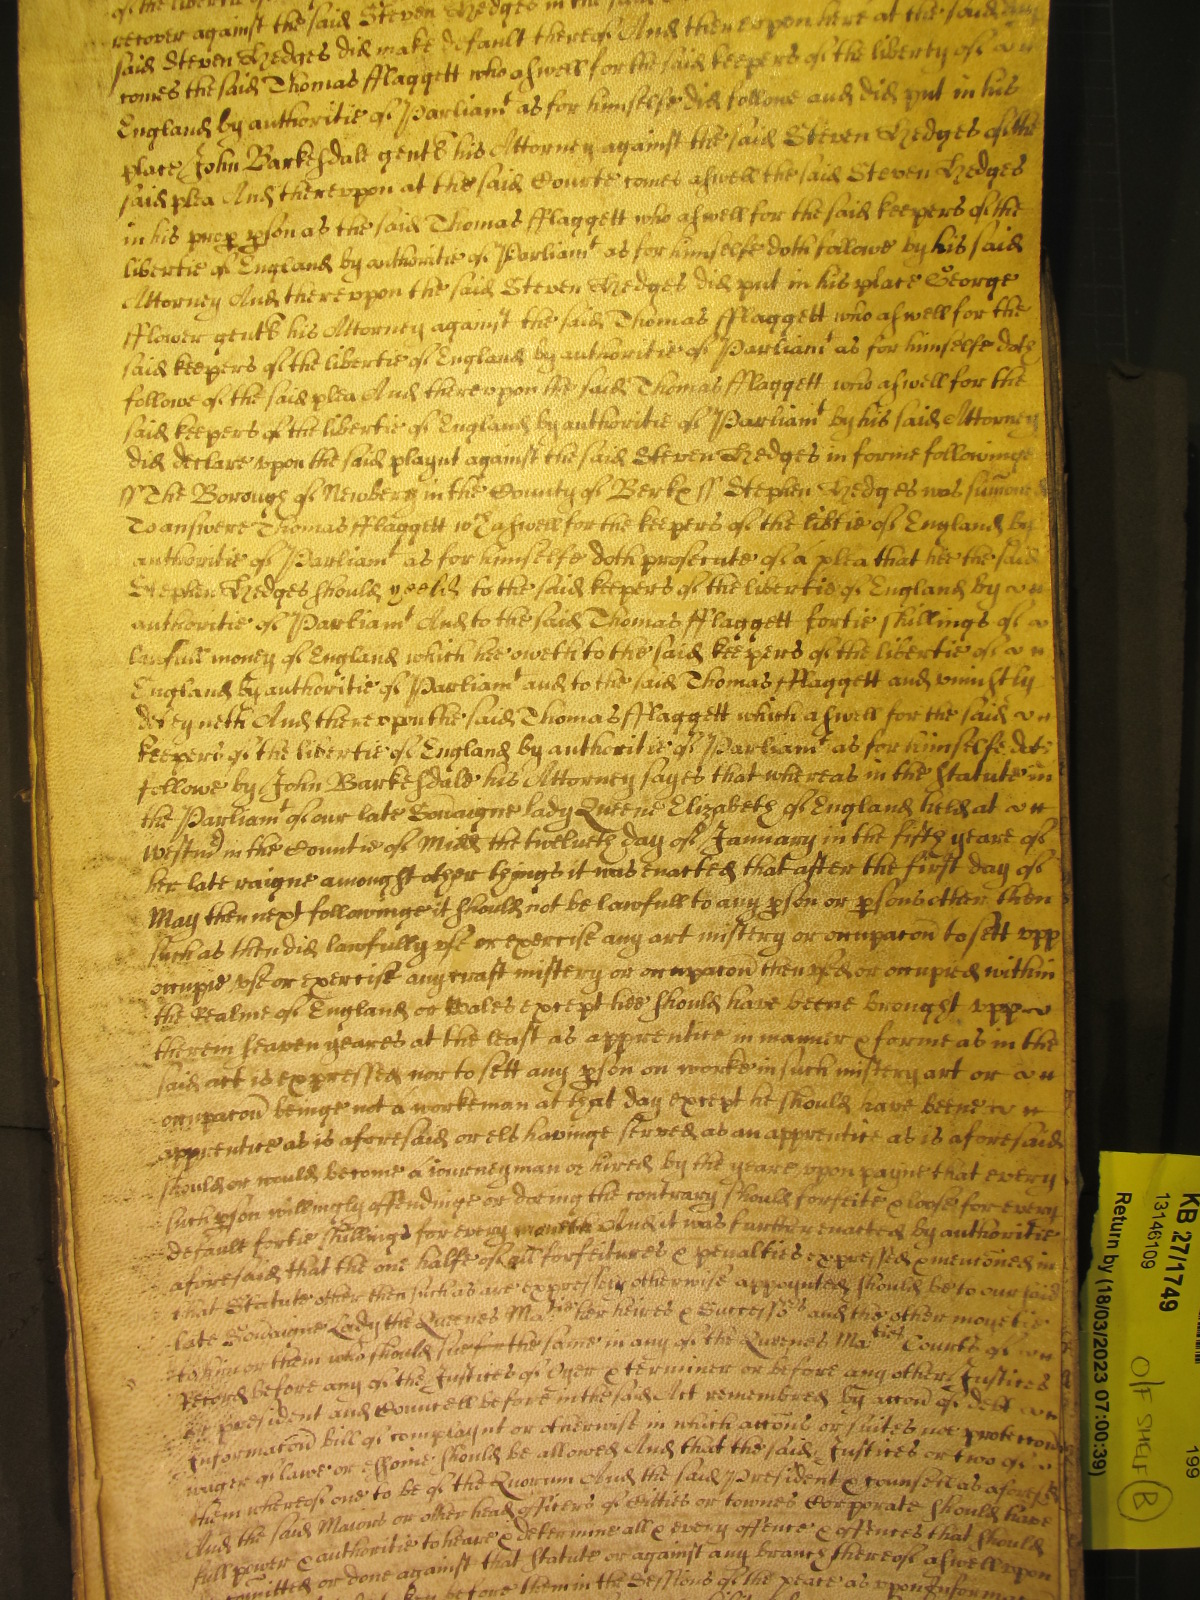 of the libertie of
recover against the said Steven Hedges in the said
said Steven Hedges did make default thereof And thereupon here at the said day
comes the said Thomas fflaggett who aswell for the said keepers of the liberty of
England by authoritie of Parliamt as for himselfe did followe and did put in his
place John Barkesdale gent his Attorney against the said Steven Hedges of the
said plea And therevpon at the said Courte comes aswell the said Steven Hedges
in his prop pson as the said Thomas fflaggett who aswell for the said keepers of the
libertie of England by authoritie of Parliamt as for himselfe doth followe by his said
Attorney And therevpon the said Steven Hedges did put in his place George
fflower gent his Attorney against the said Thomas fflaggett who aswell for the
said keepers of the libertie of England by authoritie of Parliamt as for himselfe doth
followe of the said plea And therevpon the said Thomas fflaggett who aswell for the
said keepers of the libertie of England by authoritie of Parliamt by his said Attorney
did declare vpon the said playnt against the said Steven Hedges in forme followinge
ss The Borough of Newbery in the County of Berk ss Stephen Hedges was sumoned
To answere Thomas fflaggett wch aswell for the keepers of the libtie of England by
authoritie of Parliamt as for himselfe doth prosecute of a plea that hee the said
Stephen Hedges should yeeld to the said keepers of the libertie of England by
authoritie of Parliamt And to the said Thomas fflaggett fortie shillings of
lawfull money of England which hee oweth to the said keepers of the libertie of
England by authoritie of Parliamt and to the said Thomas fflaggett and vniustly
deteyneth And therevpon the said Thomas fflaggett which aswell for the said
keepers of the libertie of England by authoritie of Parliamt as for himselfe doth
followe by John Barkesdale his Attorney sayes that whereas in the Statute in
the Parliamt of our late Sovaigne lady Queene Elizabeth of England held at
Westm in the Countie of Midd the twelveth day of January in the fifth yeare of
her late raigne amongst other things it was enacted that after the first day of
May then next followinge it should not be lawfull to any pson or psons other then
such as then did lawfully vse or exercise any art mistery or occupacon to sett vpp
occupie vse or exercise any craft mistery or occupacon then vsed or occupied within
the Realme of England or Wales except hee should have beene brought vpp
therein seaven yeares at the least as apprentice in manner & forme as in the
said act is expressed nor to sett any pson on worke in such mistery art or
occupacon beinge not a workeman at that day except he should have beene
apprentice as is aforesaid or els havinge served as an apprentice as is aforesaid
should or would become a iourneyman or hired by the yeare vpon payne that every
such pson willingly offendinge or doeing the contrary should forfeite & loose for every
default fortie shillings for every moneth And it was further enacted by authoritie
aforesaid that the one halfe of all forfeitures & penalties expressed & menconed in
that Statute other then such as are expressely otherwise appoynted should be to our said
late Sovaigne Lady the Queenes Matie her heires & Successors and the other moyetie
to him or them who should sue for the same in any of the Queenes Maties Courts of
Record before any of the Justices of Oyer & terminer or before any other Justices
or president and Councell before in the said Act remembred by accon of debt
Informacon bill of complaynt or otherwise in which accons or suites noe proteccon
wager of lawe or essoine should be allowed And that the said Justices or two of
them whereof one to be of the Quorum And the said President & counsell as aforesd
And the said Maiors or other head officers of Citties or townes Corporate should have
full power & authoritie to heare & determine all & every offence & offences that should
comitted or done against that Statute or against any branch thereof aswell vpon
before them in the Sessions of the peace as vpon Informa
KB 27/1749
13146109
Return by (18/03/2023 07:00:39)
199
O/F SHELF (B)